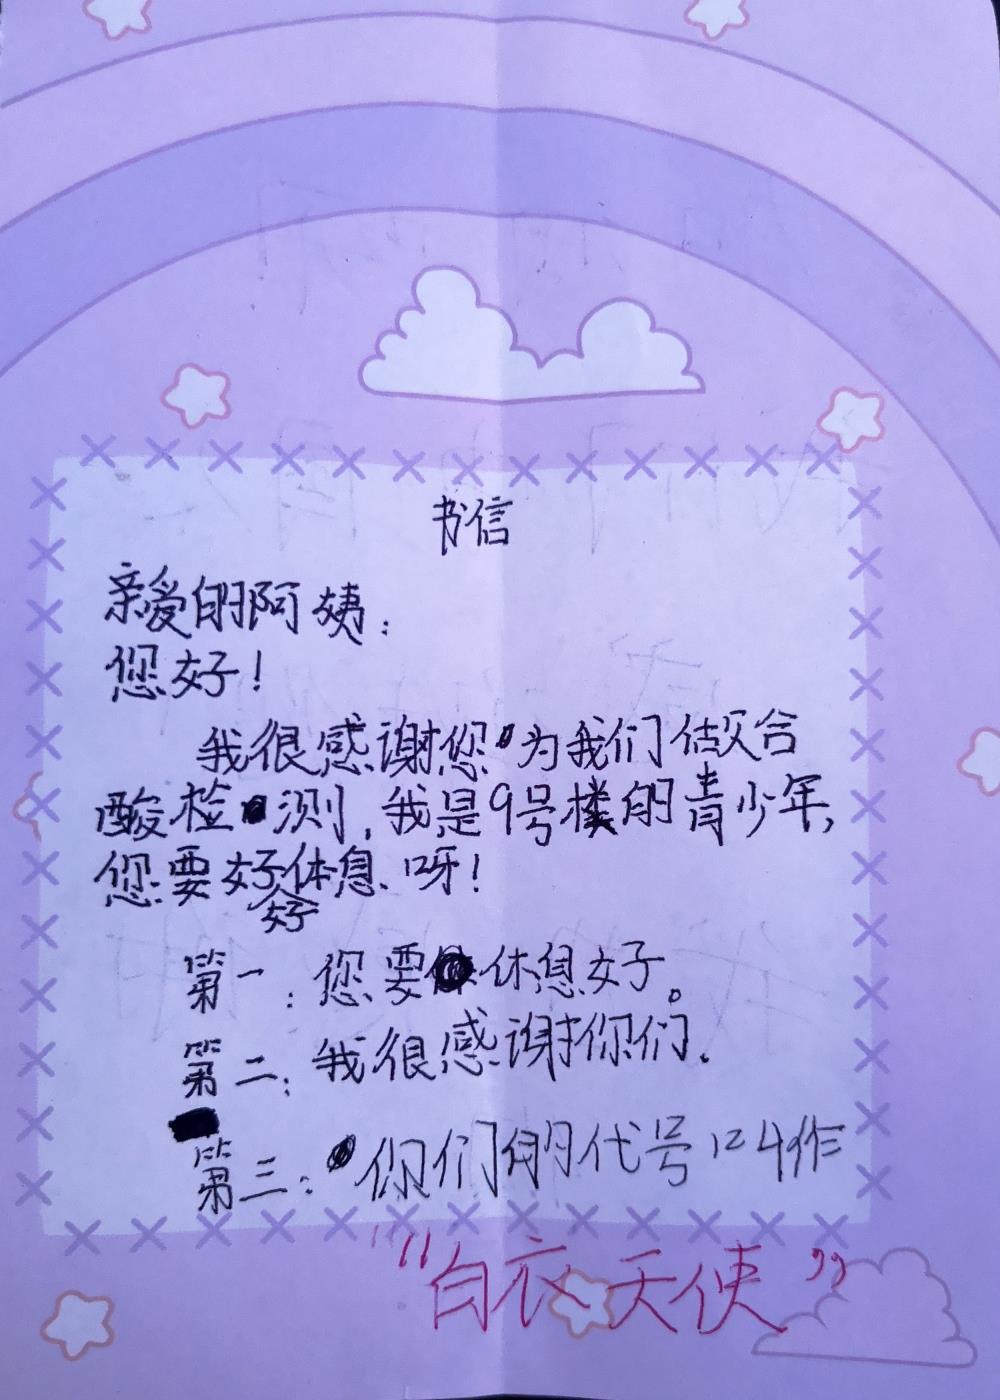 书信
亲爱的阿姨：
您好！
我很感谢您为我们做
酸检测，我是9号楼的青少年，
您要好休息呀！
好
第一：您要休息好。
第二：我很感谢你们.
第三：你们的代号叫作
“白衣天使”